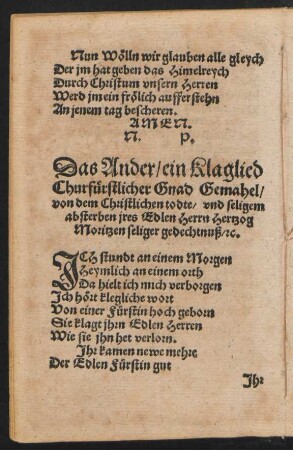 Nun Wölln wir glauben alle gleych
Der jm hat geben das Himelreych
Durch Christum vnsern Herren
Werd jm ein frölich aufferstehn
An jenem tag bescheren.
AMEN.
N. P.
Das Ander/ein Klaglied
Churfürstlicher Gnad Gemahel/
von dem Christlichen todte/ vnd seligem
absterben jres Edlen Herrn Hertzog
Moritzen seliger gedechtnuß/ꝛc.
ICH stundt an einem Morgen
Heymlich an einem orth
Da hielt ich mich verborgen
Ich hört klegliche wort
Von einer Fürstin hoch geborn
Sie klagt jhrn Edlen Herren
Wie sie jhn het verlorn.
Ihr kamen newe mehre
Der Edlen Fürstin gut
Ihr